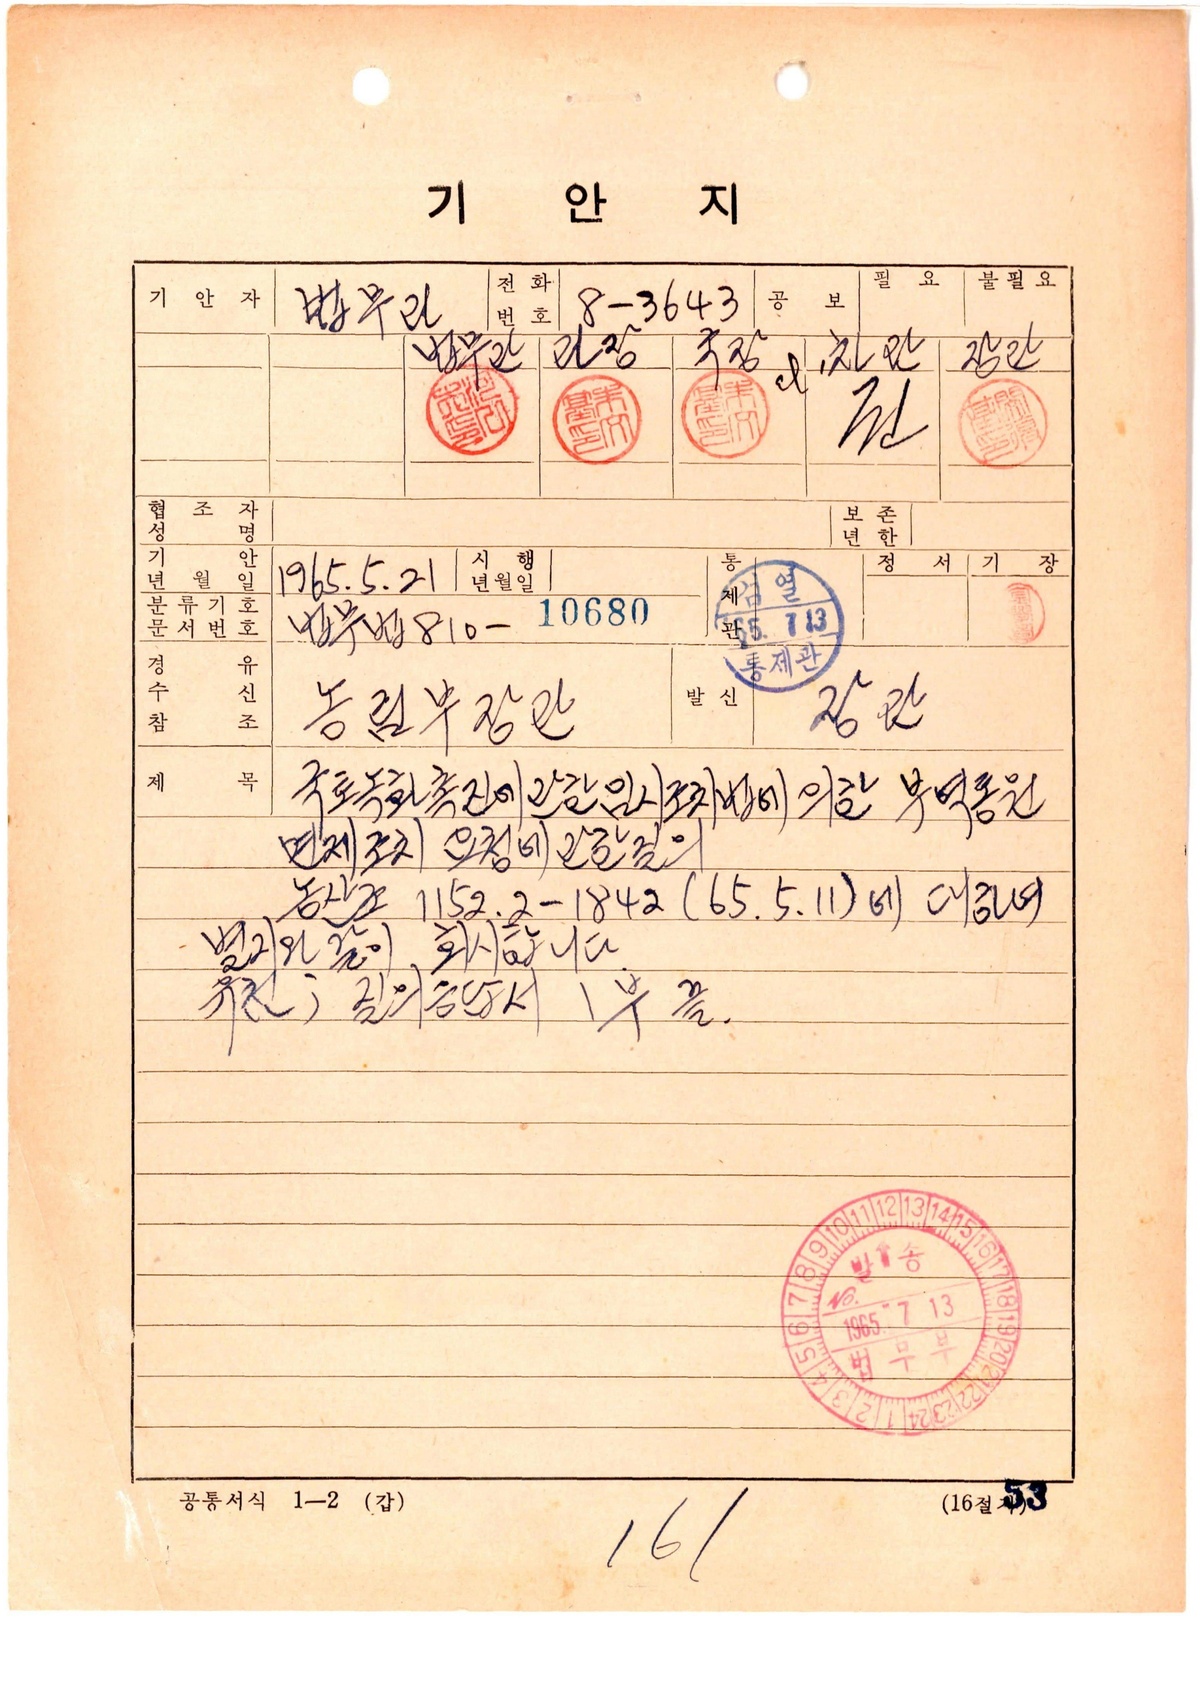 기 안 지
기 안 자 법무관 전화번호 8-3643 공 보 필 요 불필요
법무관 과장 국장 차관 장관
협조자성명 보존년한
기안년월일 1965.5.21 시행년월일 통제관 정 서 기 장
검열
65. 7 13
통제관
분류기호문서번호 법무법 810- 10680
경유수신참조 농림부장관 발신 장관
제 목 국토녹화촉진에관한임시조치법에 의한 부역동원
면제조치 요청에관한질의
농산조 1152.2-1842 (65.5.11)에 대하여
별지와 같이 회시합니다
유첨; 질의응답서 1부 끝.
1 2 3 4 5 6 7 8 9 10 11 12 13 14 15 16 17 18 19 20 21 22 23 24
발송
No.
1965. 7 13
법무부
공통서식 1—2 (갑) (16절지) 53
161